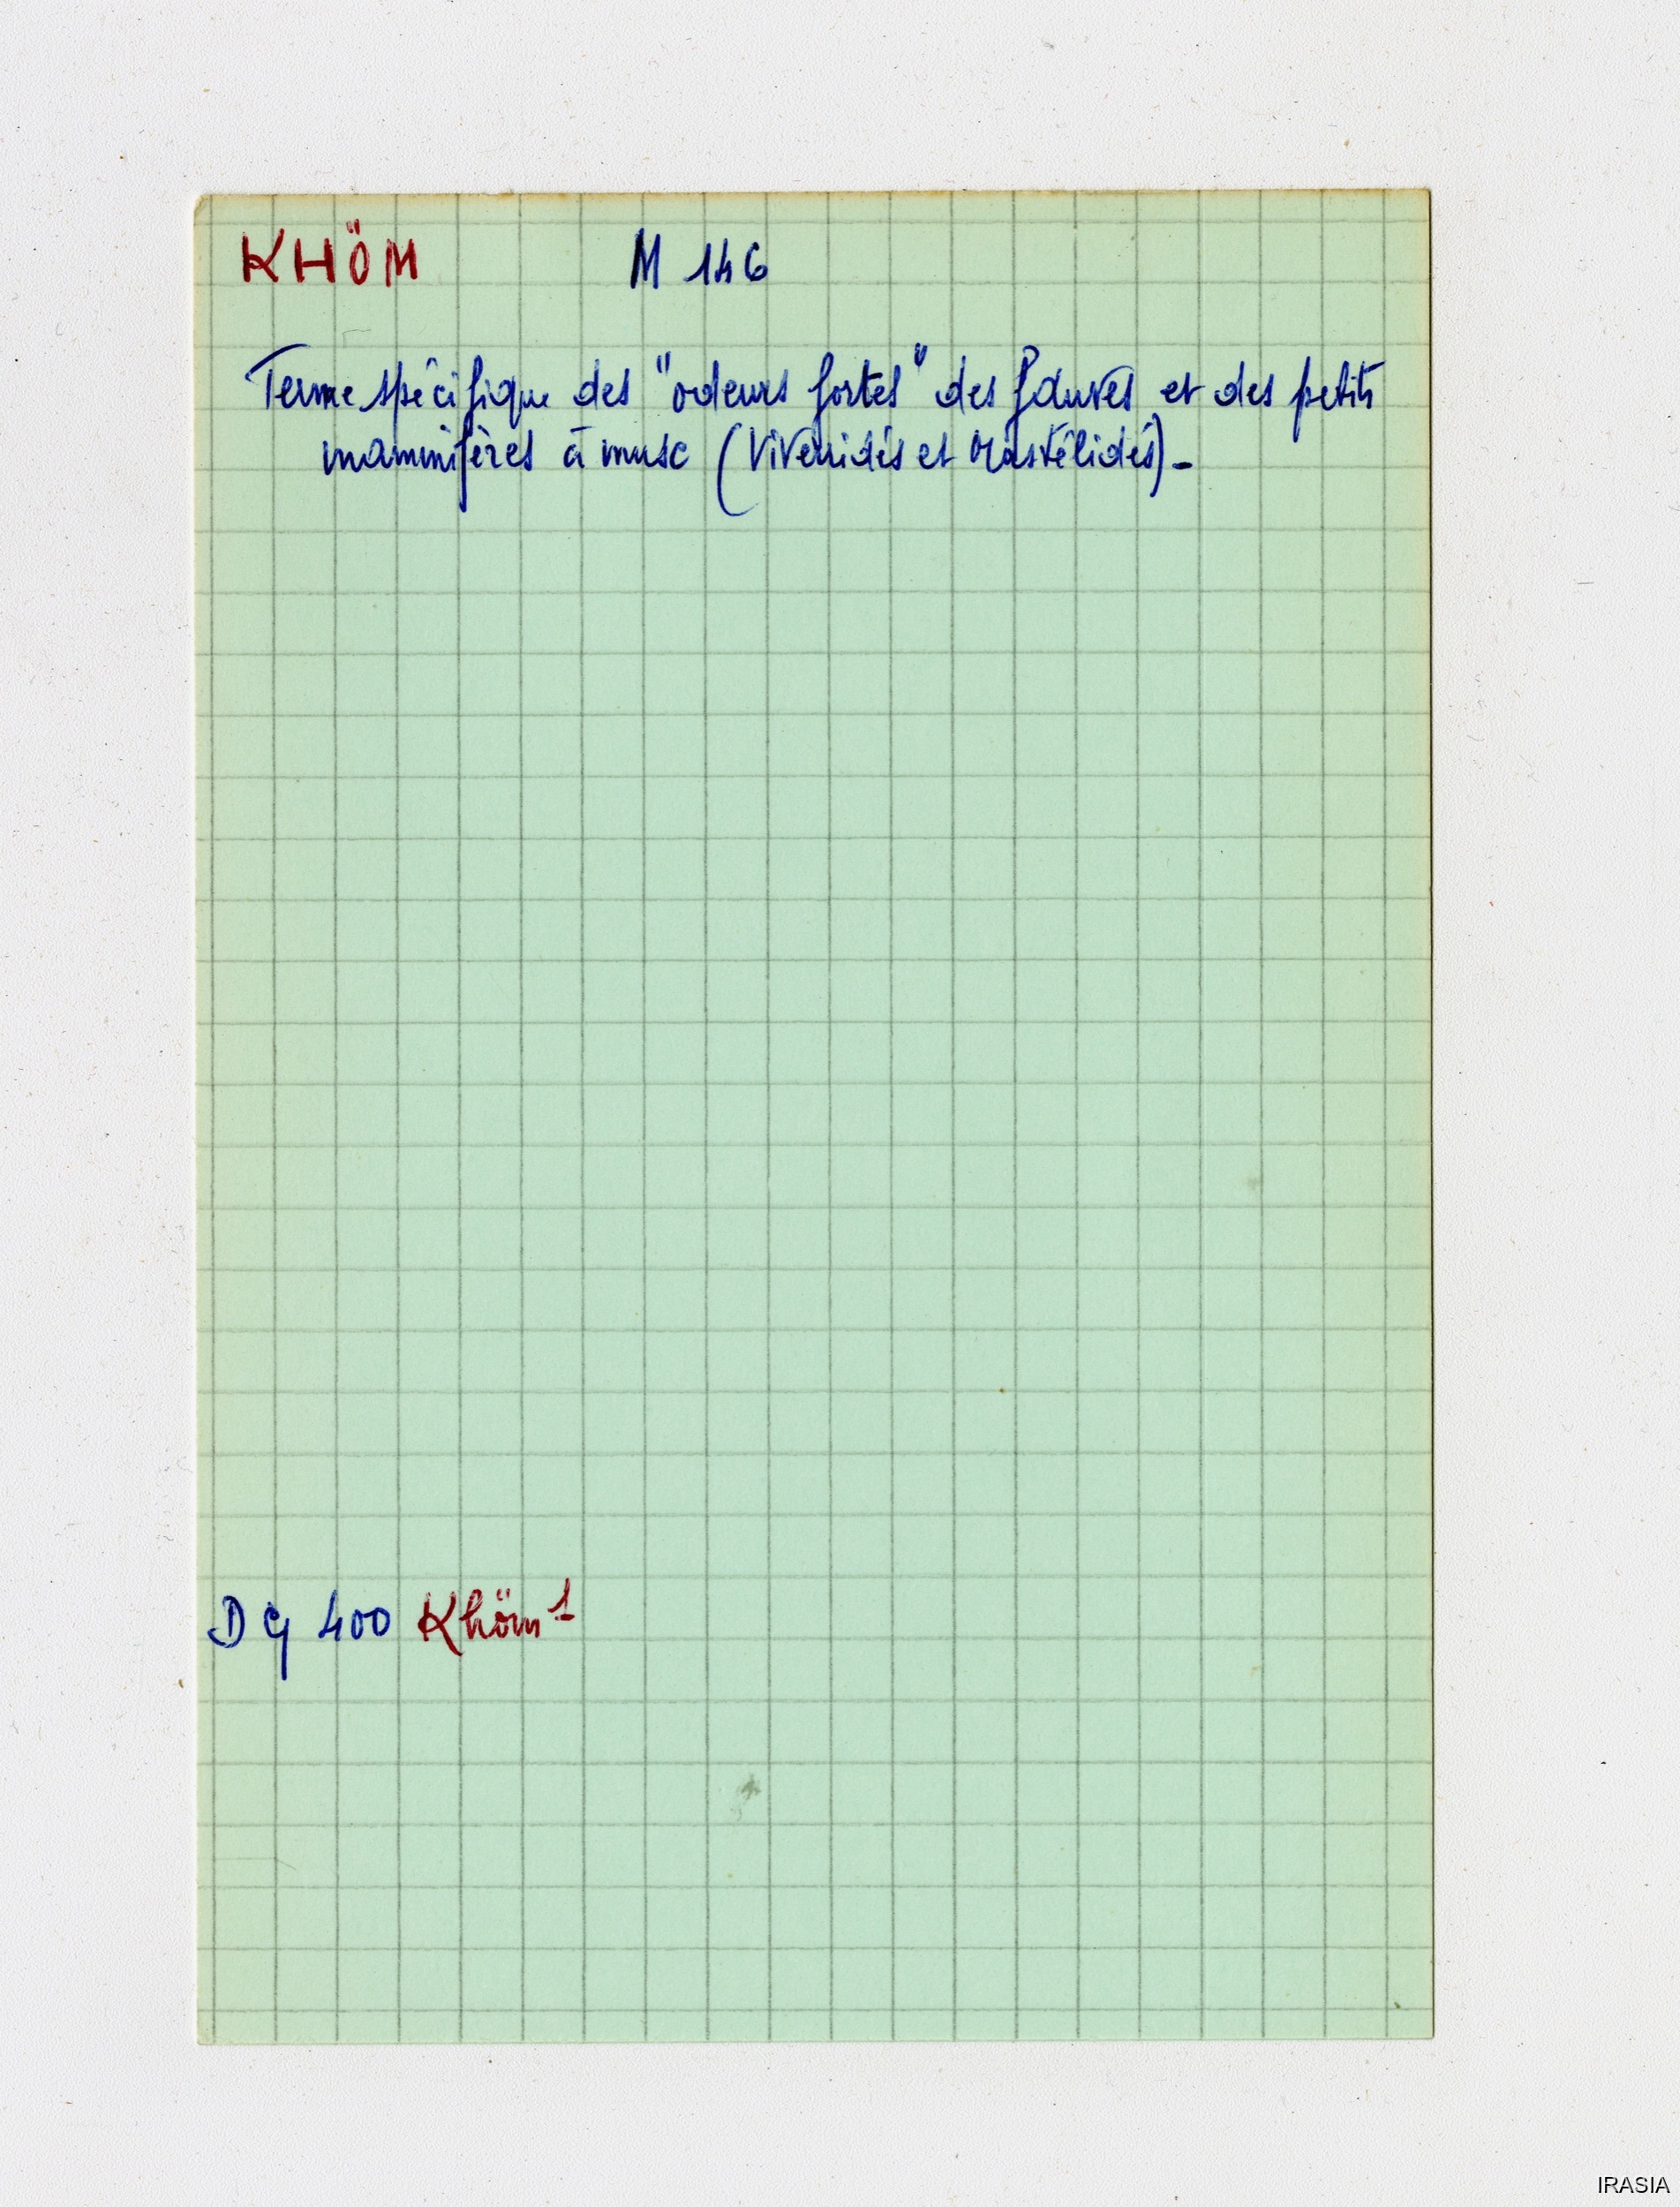 KHÖM M 146
Terme spécifique des "odeurs fortes" des fauves et des petits
mammifères à musc (Viverridés et Mustélidés)_
D G 400 Khöm 1
IRASIA